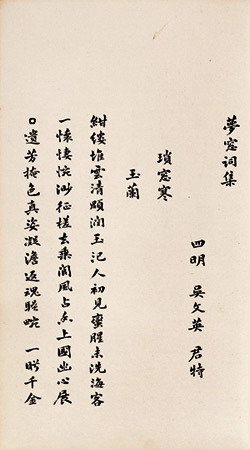 夢窓词集
四明 吳文英 君特
瑣窓寒
玉蘭
紺缕堆雲清顋潤玉汜人初見蠻腥未洗海客
一懷悽惋渺征槎去乘閬風占香上國幽心展
□遺芳掩色真姿凝澹返魂騷畹 一盻千金